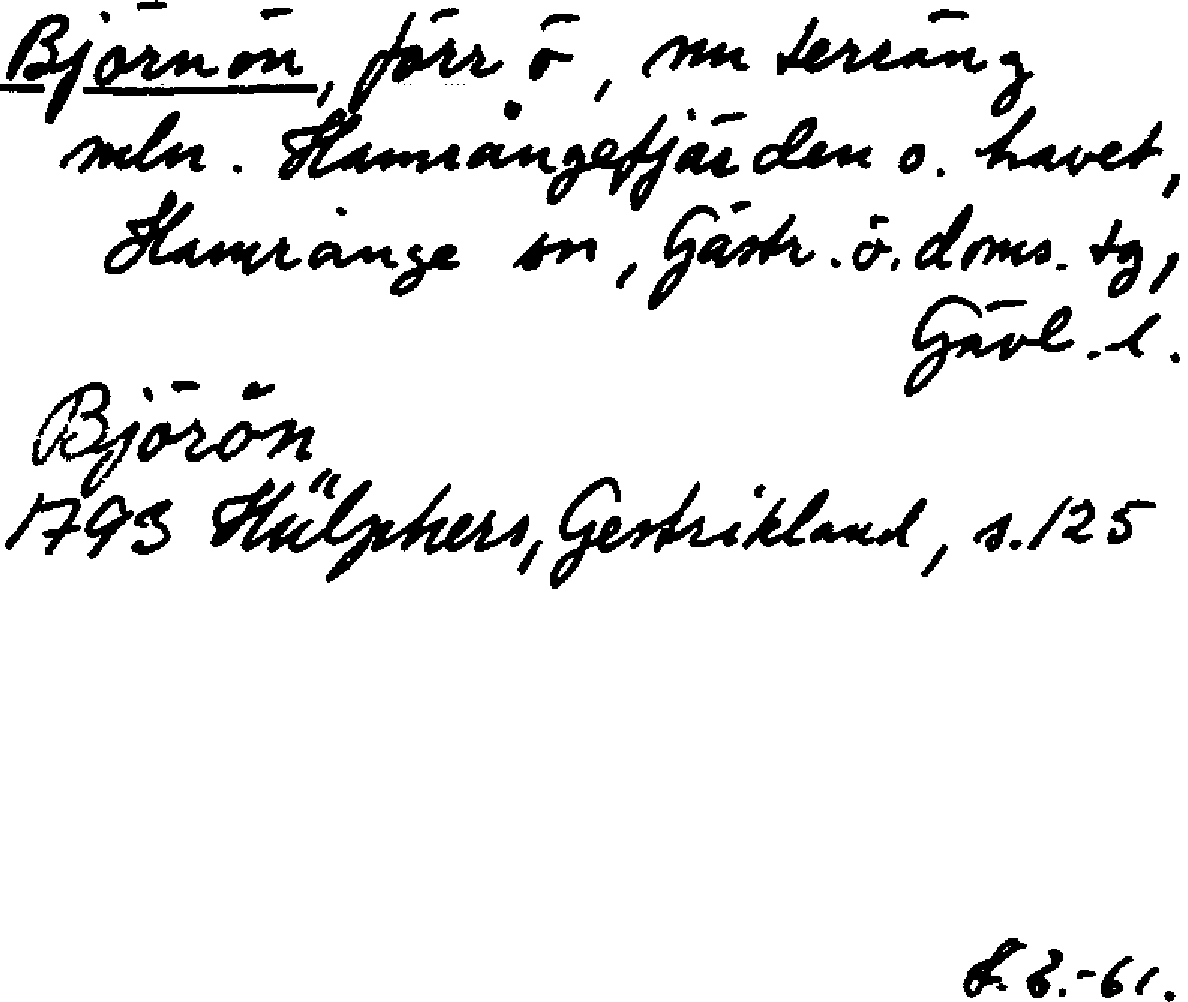 Björnön, förr ö, nu terräng
mln. Hamrångefjärden o. havet,
Hamrånge sn, Gästr. ö. doms. tg,
Gävl. l.
Björön
1793 Hülphers, Gestrikland, s. 125
K. B. -61.